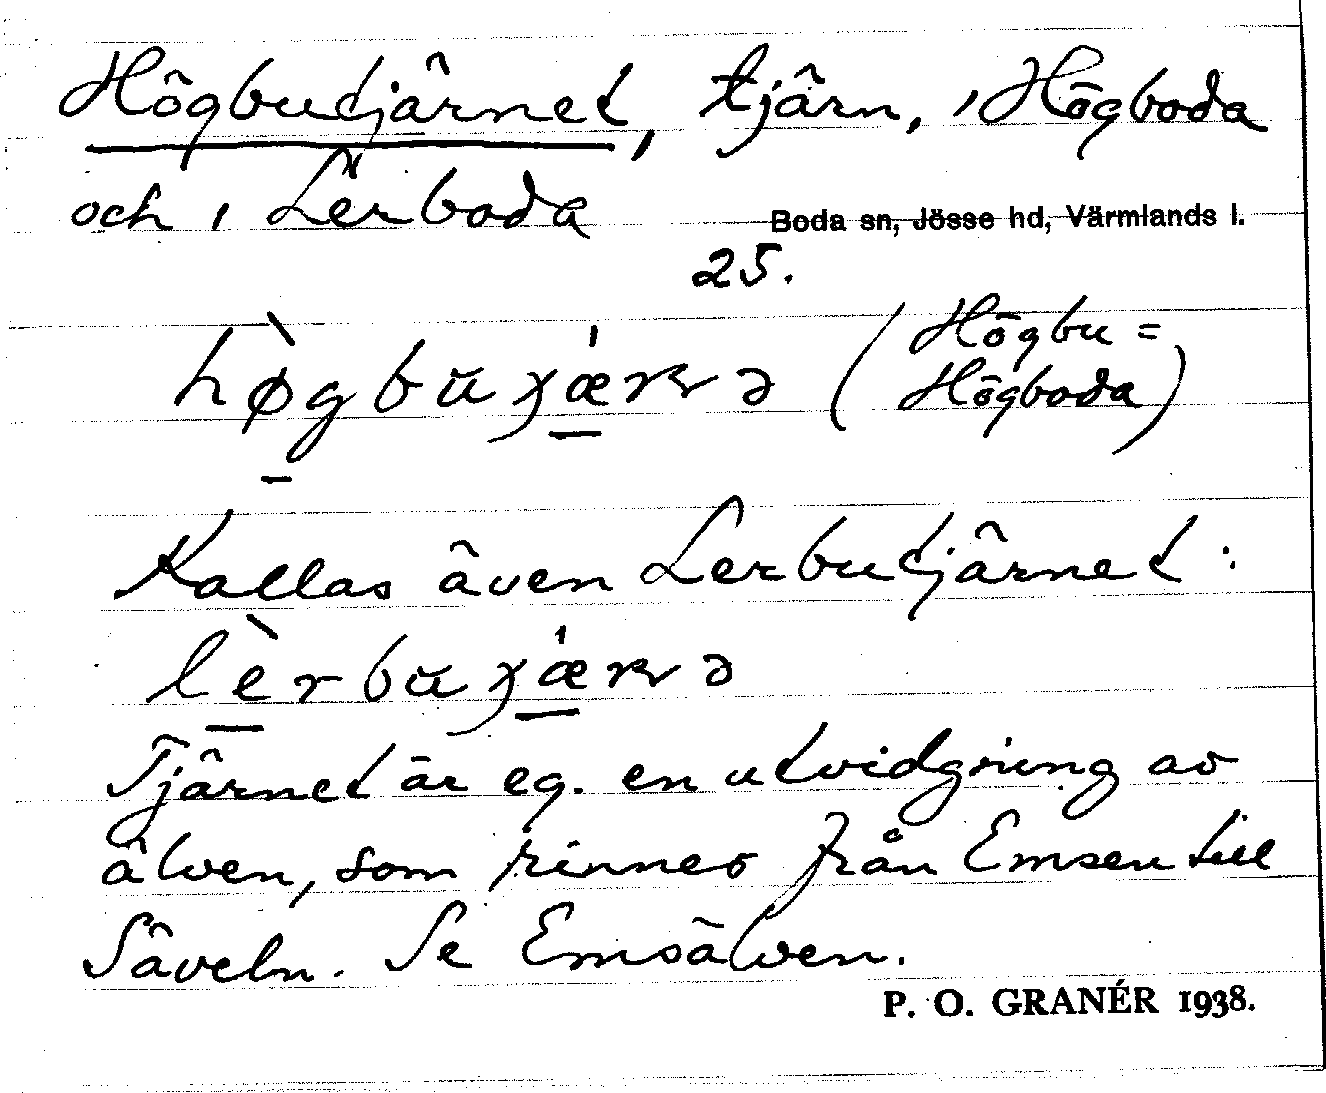 Högbutjärnet, tjärn, i Högboda
och i Lerboda
Boda sn, Jösse hd, Värmlands l.
25.
(Högbu =
Högboda)
Kallas även Lerbutjärnet:
Tjärnet är eg. en utvidgning av
älven, som rinner från Emsen till
Säveln. Se Emsälven.
P. O. GRANÉR 1938.